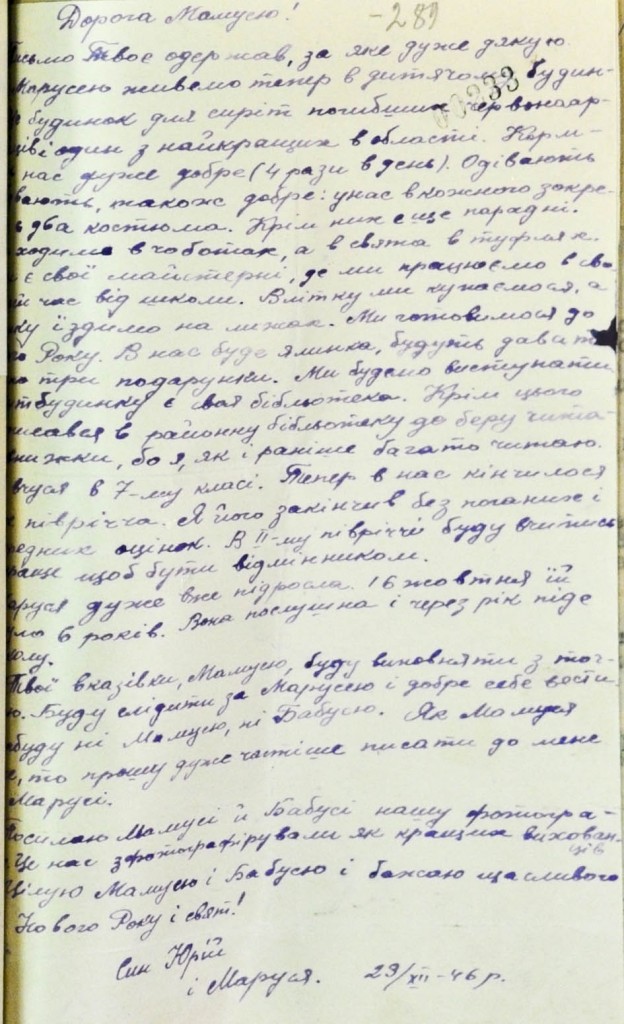 Дорога Мамусю!
-281
00233
исьмо Твоє одержав, за яке дуже дякую.
Марусею живемо тепер в дитячом будин-
будинок для сиріт погибших червоноар-
ців і один з найкращих в області. Корм-
нас дуже добре (4 рази в день). Одівають
вають, також добре: у нас в кожного закре-
два костюма. Крім них є ще парадні.
ходимо в чоботях, а в свята в туфлях.
є свої майстерні, де ми працюємо в сво-
час від школи. Влітку ми купаємося, а
ку їздимо на лижах. Ми готовимося до
Року. В нас буде ялинка, будуть давати
по три подарунки. Ми будемо виступати
тбудинку є своя бібльотека. Крім цього
писався в районну бібльотеку до беру чита-
нижки, бо я, як і раніше багато читаю.
вчуся в 7-му класі. Тепер в нас кінчилося
півріччя. Я його закінчив без поганих і
редних оцінок. В II-му півріччі буду вчитись
раще щоб бути відлінником.
аруся дуже вже підросла. 16 жовтня їй
уло 6 років. Вона послушна і через рік піде
колу.
Твої вказівки, Мамусю, буду виповняти з точ-
ю. Буду слідити за Марусею і добре себе вести
абуду ні Мамусю, ні Бабусю. Як Мамуся
е, то прошу дуже частіше писати до мене
Марусі.
Посилаю Мамусі й Бабусі нашу фотогра-
Це нас зфотографірували як кращих вихован-
ців
Цілую Мамусю і Бабусю і бажаю щасливого
Нового Року і свят!
Син Юрій
і Маруся. 29/XII-46 р.